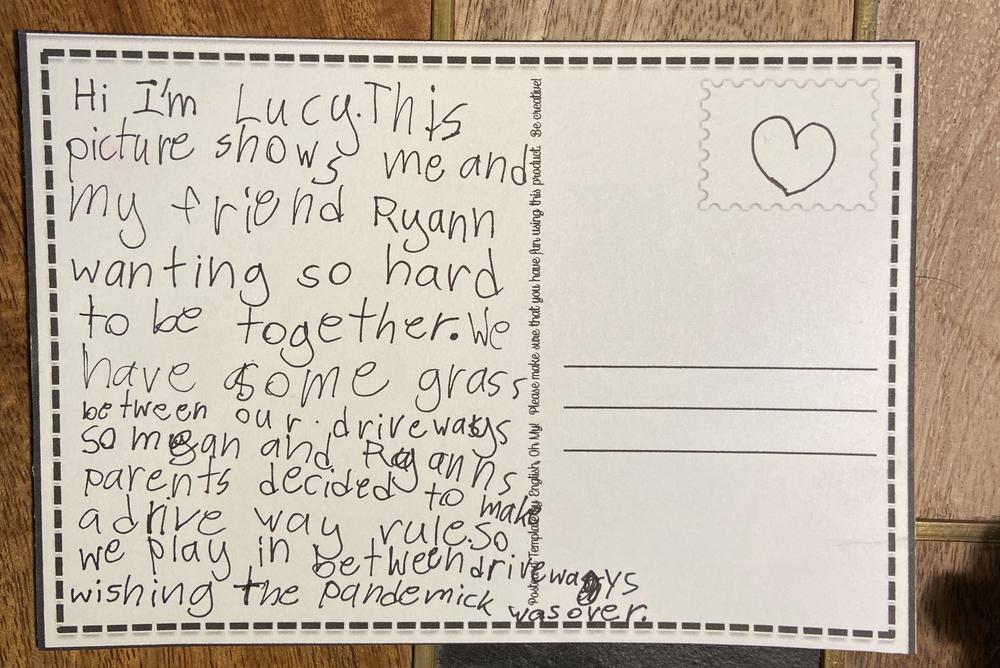 Hi I'm Lucy. This
picture shows me and
my friend Ryann
wanting so hard
to be together. We
have some grass
between our driveways
so megan and Ryanns
parents decided to make
a drive way rule. So
we play in between driveways
wishing the pandemick was over.
Postcard Template by English, Oh My! Please make sure that you have fun using this product. Be creative!